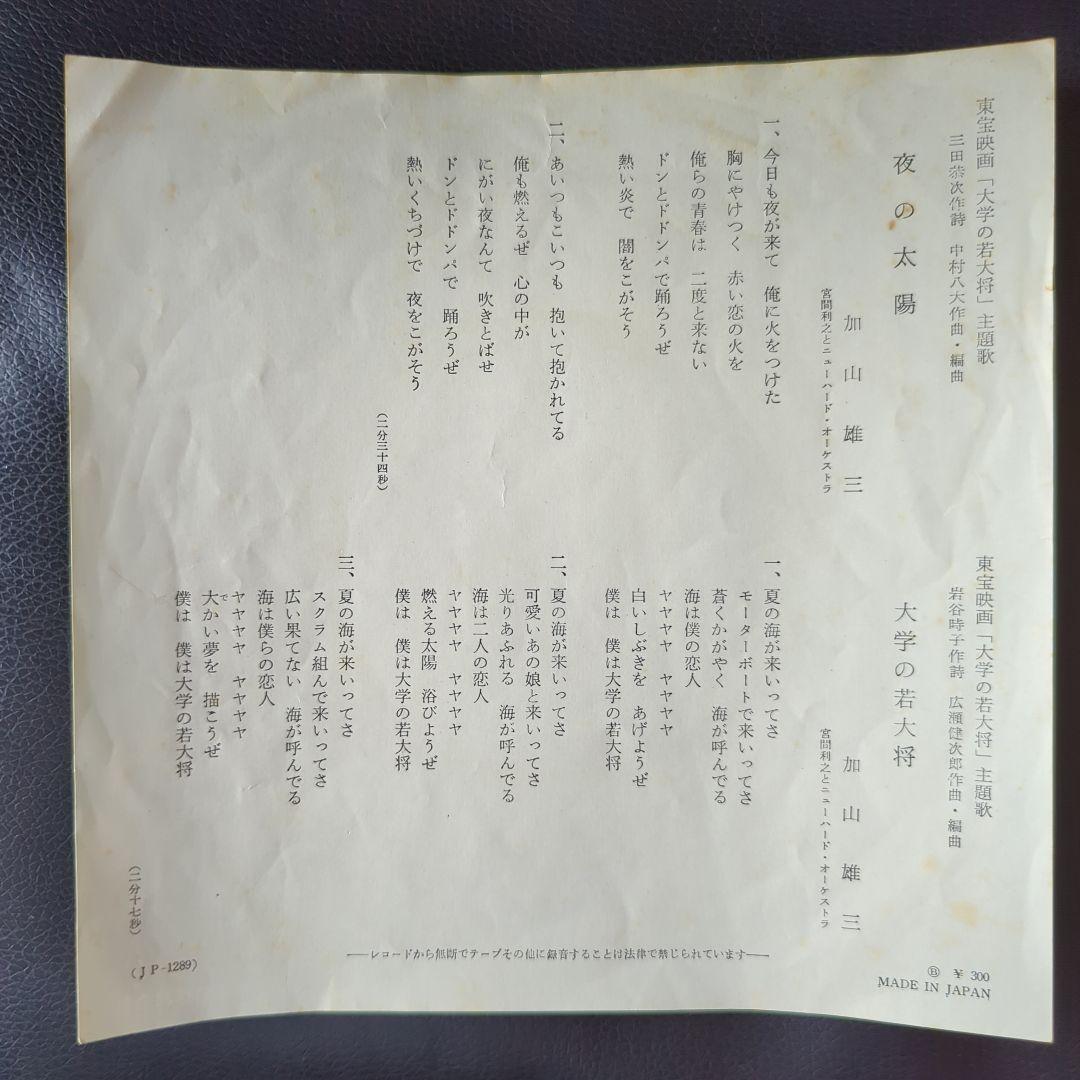 東宝映画「大学の若大将」主題歌
三田恭次作詩 中村八大作曲・編曲
夜の太陽
加山雄三
宮間利之とニューハード・オーケストラ
一、今日も夜が来て 俺に火をつけた
胸にやけつく 赤い恋の火を
俺らの青春は 二度と来ない
ドンとドドンパで踊ろうぜ
熱い炎で 闇をこがそう
二、あいつもこいつも 抱いて抱かれてる
俺も燃えるぜ 心の中が
にがい夜なんて 吹きとばせ
ドンとドドンパで 踊ろうぜ
熱いくちづけで 夜をこがそう
(二分三十四秒)
東宝映画「大学の若大将」主題歌
岩谷時子作詩 広瀬健次郎作曲・編曲
大学の若大将
加山雄三
宮間利之とニューハード・オーケストラ
一、夏の海が来いってさ
モーターボートで来いってさ
蒼くかがやく 海が呼んでる
海は僕の恋人
ヤヤヤヤ ヤヤヤヤ
白いしぶきを あげようぜ
僕は 僕は大学の若大将
二、夏の海が来いってさ
可愛いあの娘と来いってさ
光りあふれる 海が呼んでる
海は二人の恋人
ヤヤヤヤ ヤヤヤヤ
燃える太陽 浴びようぜ
僕は 僕は大学の若大将
三、夏の海が来いってさ
スクラム組んで来いってさ
広い果てない 海が呼んでる
海は僕らの恋人
ヤヤヤヤ ヤヤヤヤ
大でかい夢を 描こうぜ
僕は 僕は大学の若大将
(二分十七秒)
——レコードから無断でテープその他に録音することは法律で禁じられています——
(JP-1289)
Ⓑ ¥ 300
MADE IN JAPAN